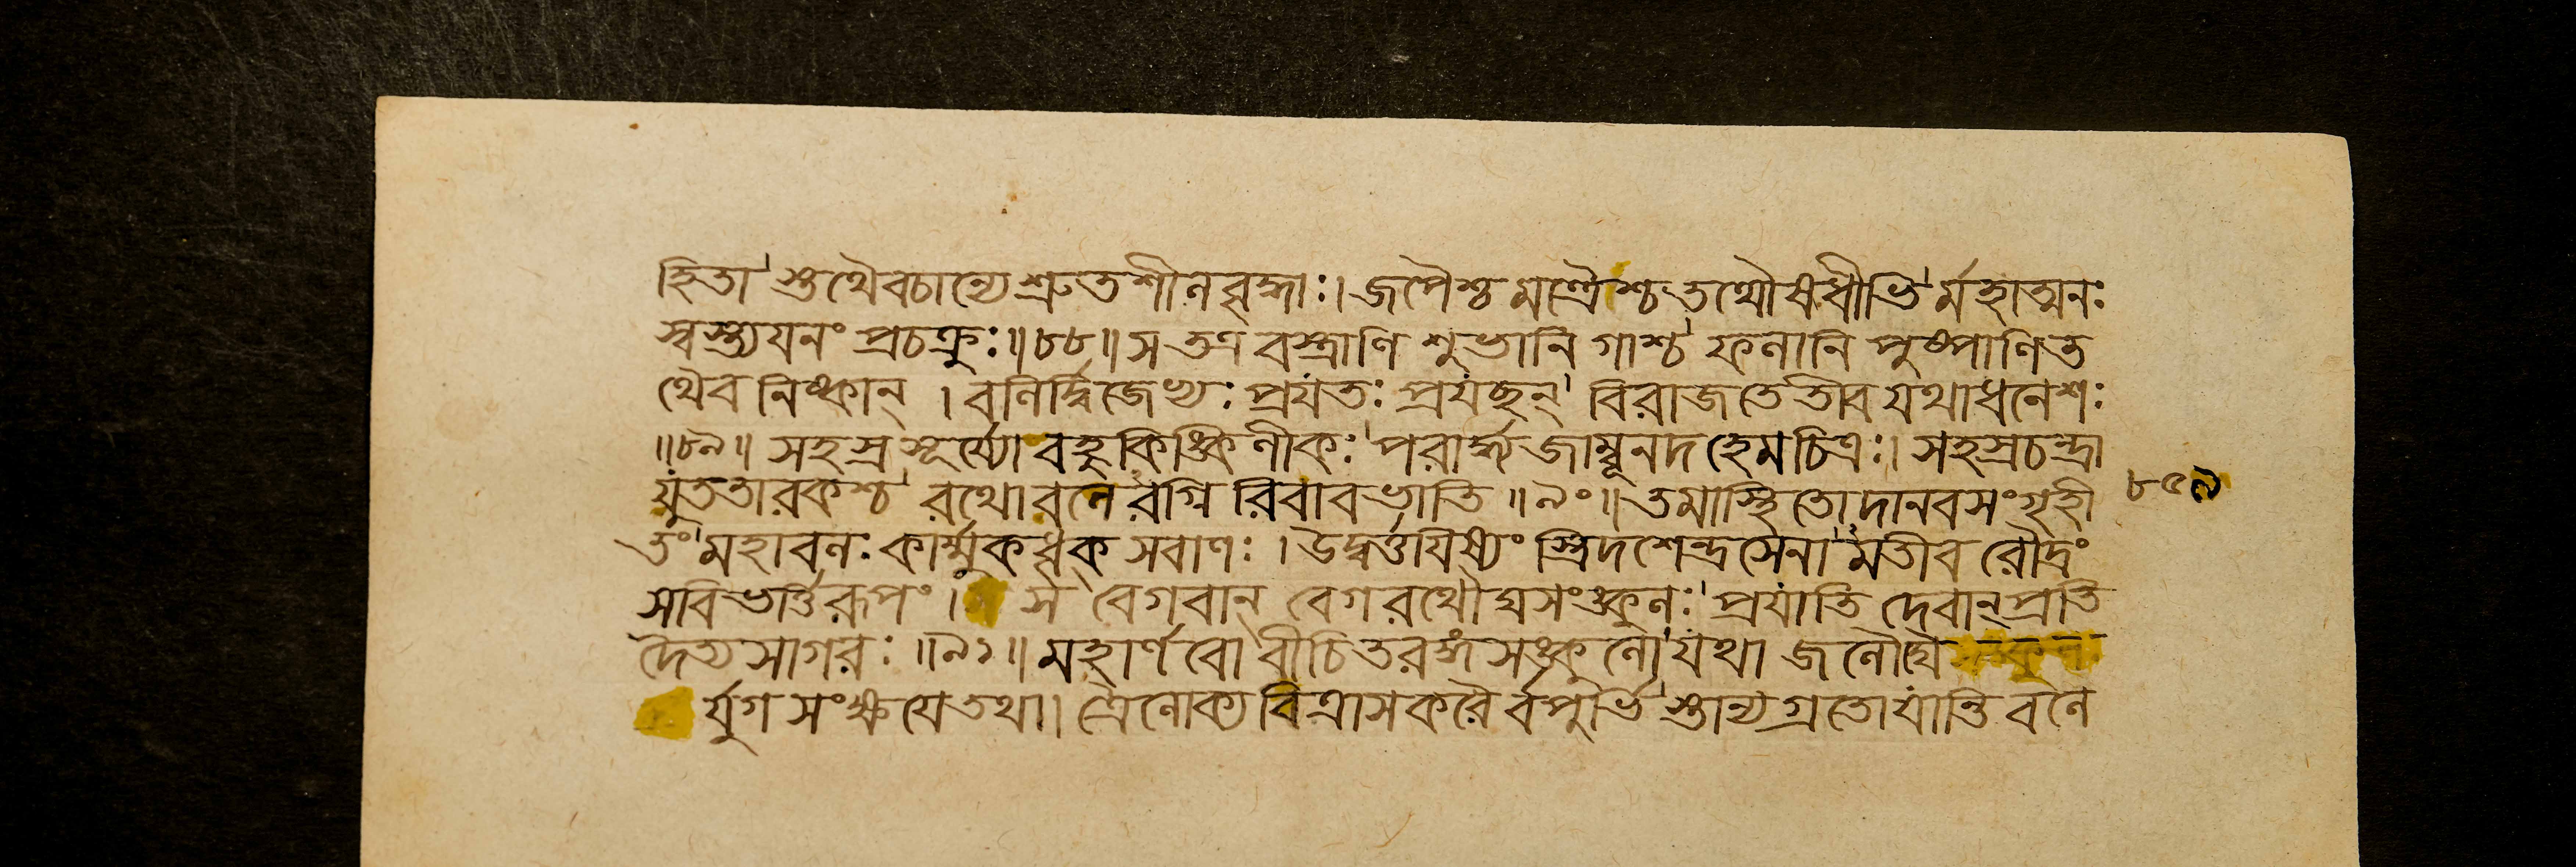 হিতা স্তথৈবচান্যে শ্রুতশীলবৃদ্ধাঃ। জপৈশ্চ মন্ত্রৈশ্চ তথৌষধীভি র্মহাত্মনঃ
স্বস্ত্যযনং প্রচক্রুঃ॥৮৮॥ স তত্র বস্ত্রাণি শুভানি গাশ্চ ফলানি পুষ্পাণি ত
থৈব নিষ্কান্ । বলির্দ্বিজেভ্যঃ প্রযতঃ প্রযছন্ বিরাজতেতীব যথাধনেশঃ
॥৮৯॥ সহস্রসূর্য্যো বহুকিঙ্কিণীকঃ পরার্দ্ধ্যজাম্বূনদহেমচিত্রঃ। সহস্রচন্দ্রা
যুততারকশ্চ রথো বলেরগ্নিরিবাবভাতি ॥৯০॥ তমাস্থিতো দানবসংগৃহী ৮৫৯
তং মহাবলঃ কার্ম্মুকধৃক্ সবাণঃ । উদ্বর্ত্তযিষ্যং স্ত্রিদশেন্দ্রসেনা মতীব রৌদ্রং
স বিভর্ত্তি রূপং । স বেগবান্ বেগরথৌঘসংকুলঃ প্রযাতি দেবান্ প্রতি
দৈত্যসাগরঃ ॥৯১॥ মহার্ণবো বীচিতরঙ্গসঙ্কুলো যথা জলৌঘৈ
র্যুগসংক্ষযে তথা। ত্রৈলোক্যবিত্রাসকরৈ র্বপুর্ভি স্তান্যগ্রতো যান্তি বলে